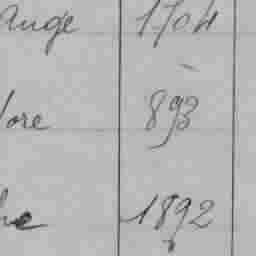 Auge 1704
lore 893
he 1892